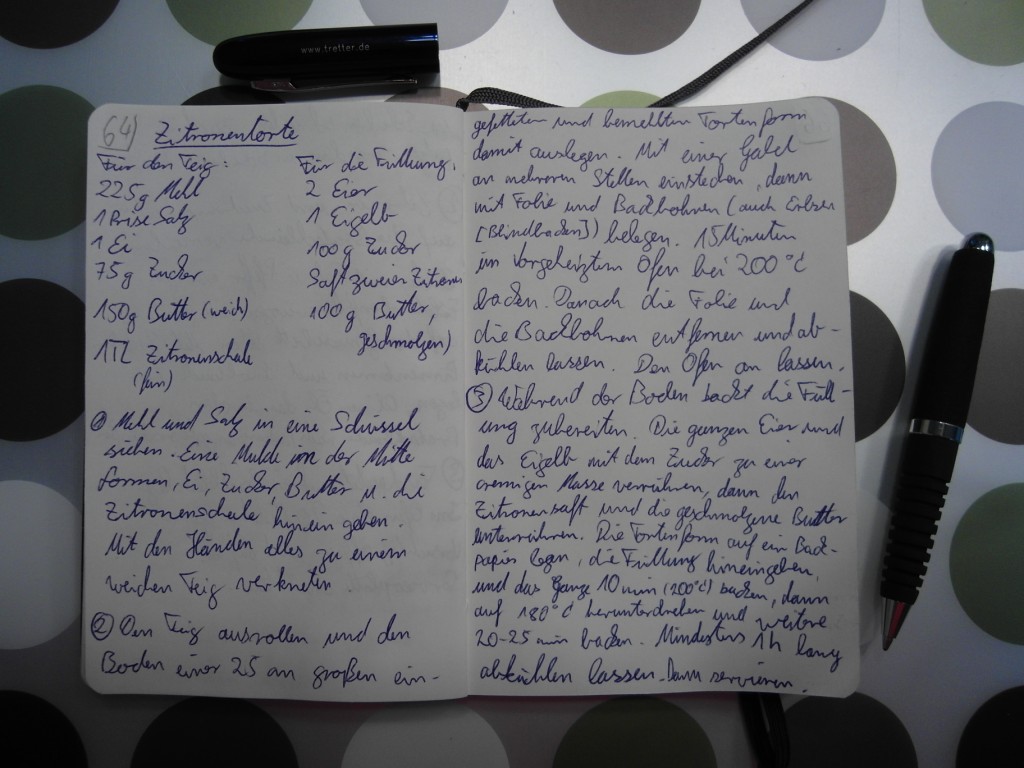 www.tretter.de
64) Zitronentorte
Für den Teig:
225g Mehl
1 Prise Salz
1 Ei
75g Zucker
150g Butter (weich)
1TL Zitronenschale
(fein)
Für die Füllung:
2 Eier
1 Eigelb
100g Zucker
Saft zweier Zitronen
100g Butter,
geschmolzen)
① Mehl und Salz in eine Schüssel
sieben. Eine Mulde in der Mitte
formen, Ei, Zucker, Butter u. die
Zitronenschale hinein geben.
Mit den Händen alles zu einem
weichen Teig verkneten.
② Den Teig ausrollen und den
Boden einer 25 cm großen ein-
gefetteten und bemehlten Tortenform
damit auslegen. Mit einer Gabel
an mehreren Stellen einstechen, dann
mit Folie und Backbohnen (auch Erbsen
[Blindbacken]) belegen. 15 Minuten
im vorgeheiztem Ofen bei 200°C
backen. Danach die Folie und
die Backbohnen entfernen und ab-
kühlen lassen. Den Ofen an lassen.
③ Während der Boden backt die Füll-
ung zubereiten. Die ganzen Eier und
das Eigelb mit dem Zucker zu einer
cremigen Masse verrühren, dann den
Zitronensaft und die geschmolzene Butter
unterrühren. Die Tortenform auf ein Back-
papier legen, die Füllung hineingeben,
und das Ganze 10 min (200°C) backen, dann
auf 180°C herunterdrehen und weitere
20-25 min backen. Mindestens 1h lang
abkühlen lassen. Dann servieren.